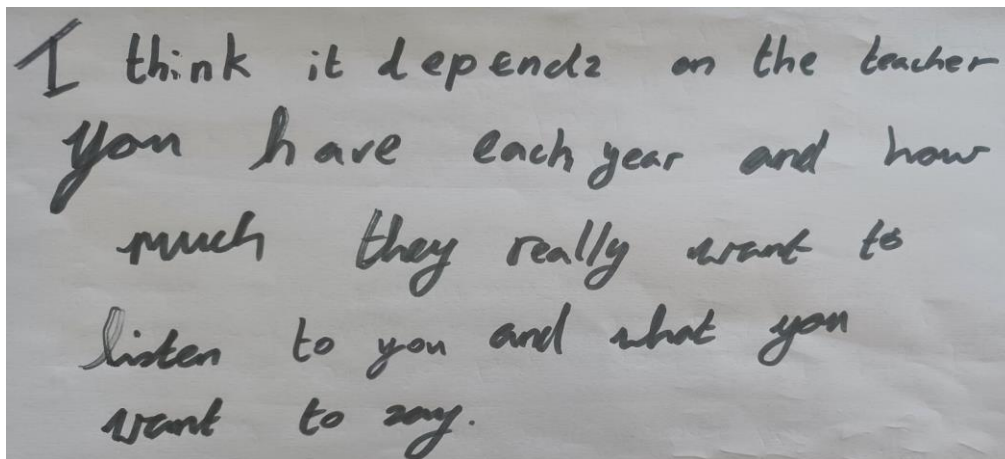 I think it depends on the teacher
you have each year and how
much they really want to
listen to you and what you
want to say.